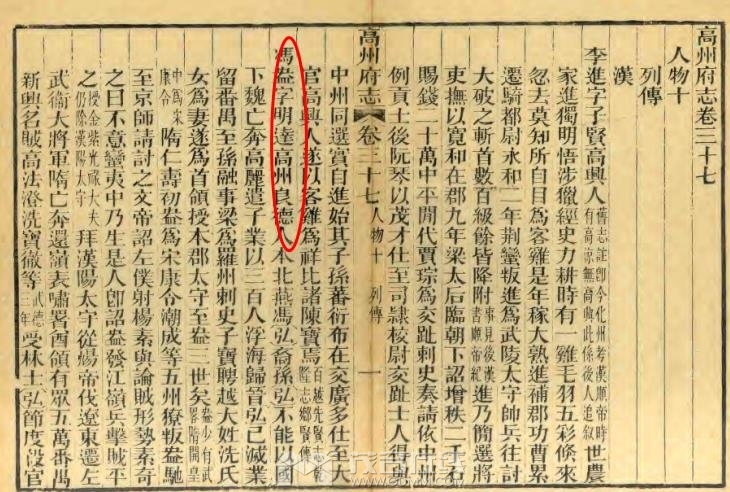 高州府志卷三十七
人物十
列傳
漢
李進字子賢高興人舊志註即今化州考漢順帝時有高涼無高興此係後人追敘世農
家進獨明悟涉獵經史力耕時有一雞毛羽五彩倏來
忽去莫知所自目為客雞是年稼大熟進補郡功曹累
遷騎都尉永和二年荆蠻叛進為武陵太守帥兵往討
大破之斬首數百級餘皆降附事見後漢書順帝紀進乃簡選將
吏撫以寬和在郡九年梁太后臨朝下詔增秩二千石
賜錢二十萬中平閒代賈琮為交趾刺史奏請依中州
例貢士後阮琴以茂才仕至司隸校尉交趾士人得與
高州府志 卷三十七 人物十 列傳 一
中州同選實自進始其子孫蕃衍布在交廣多仕至大
官高興人遂以客雞為祥比諸陳寶焉百越先賢傳乾隆志鄉賢傳
馮盎字明達高州良德人本北燕馮弘裔孫弘不能以國
下魏亡奔高麗遣子業以三百人浮海歸晉弘已滅業
留番禺至孫融事梁為羅州刺史子寶聘越大姓洗氏
女為妻遂為首領授本郡太守至盎三世矣盎少有武畧隋開皇
中為宋康令隋仁壽初盎為宋康令潮成等五州獠叛盎馳
至京師請討之文帝詔左僕射楊素與論賊形勢素奇
之曰不意蠻夷中乃生是人即詔盎發江嶺兵擊賊平
之授金紫光祿大夫仍除漢陽太守拜漢陽太守從煬帝伐遼東遷左
武衛大將軍隋亡奔還嶺表嘯署酋領有眾五萬番禺
新興名賊高法澄洗寶徹等武德三年受林士弘節度殺官